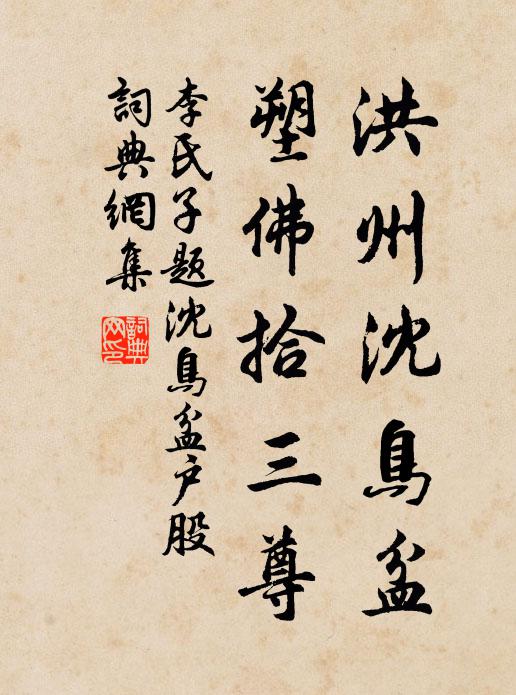 洪州沈鳥盆
塑佛拾三尊
李氏子題沈鳥盆户股
詞典網集
詞典網印